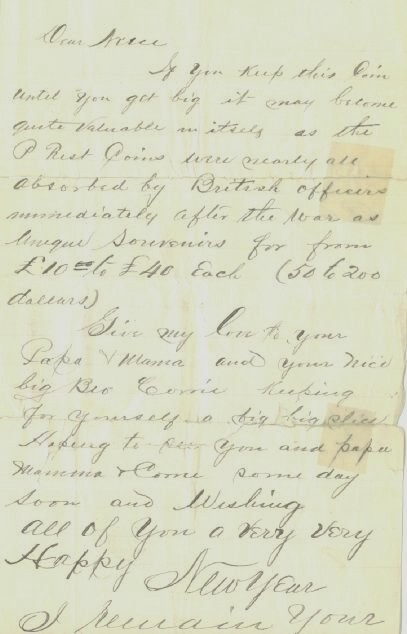 Dear Niece
If you keep this Coin
until you get big it may become
quite valuable in itself as the
P Rest Coins were nearly all
absorbed by British officers
immediately after the War as
Unique Souvenirs for from
£10 to £40 Each (50 to 200
dollars)
Give my love to your
Papa & Mama and your nice
big Bro keeping
for yourself a big big slice
Hoping to see you and papa
Mamma & some day
soon and Wishing
all of you a very very
Happy
New Year
I Remain Your